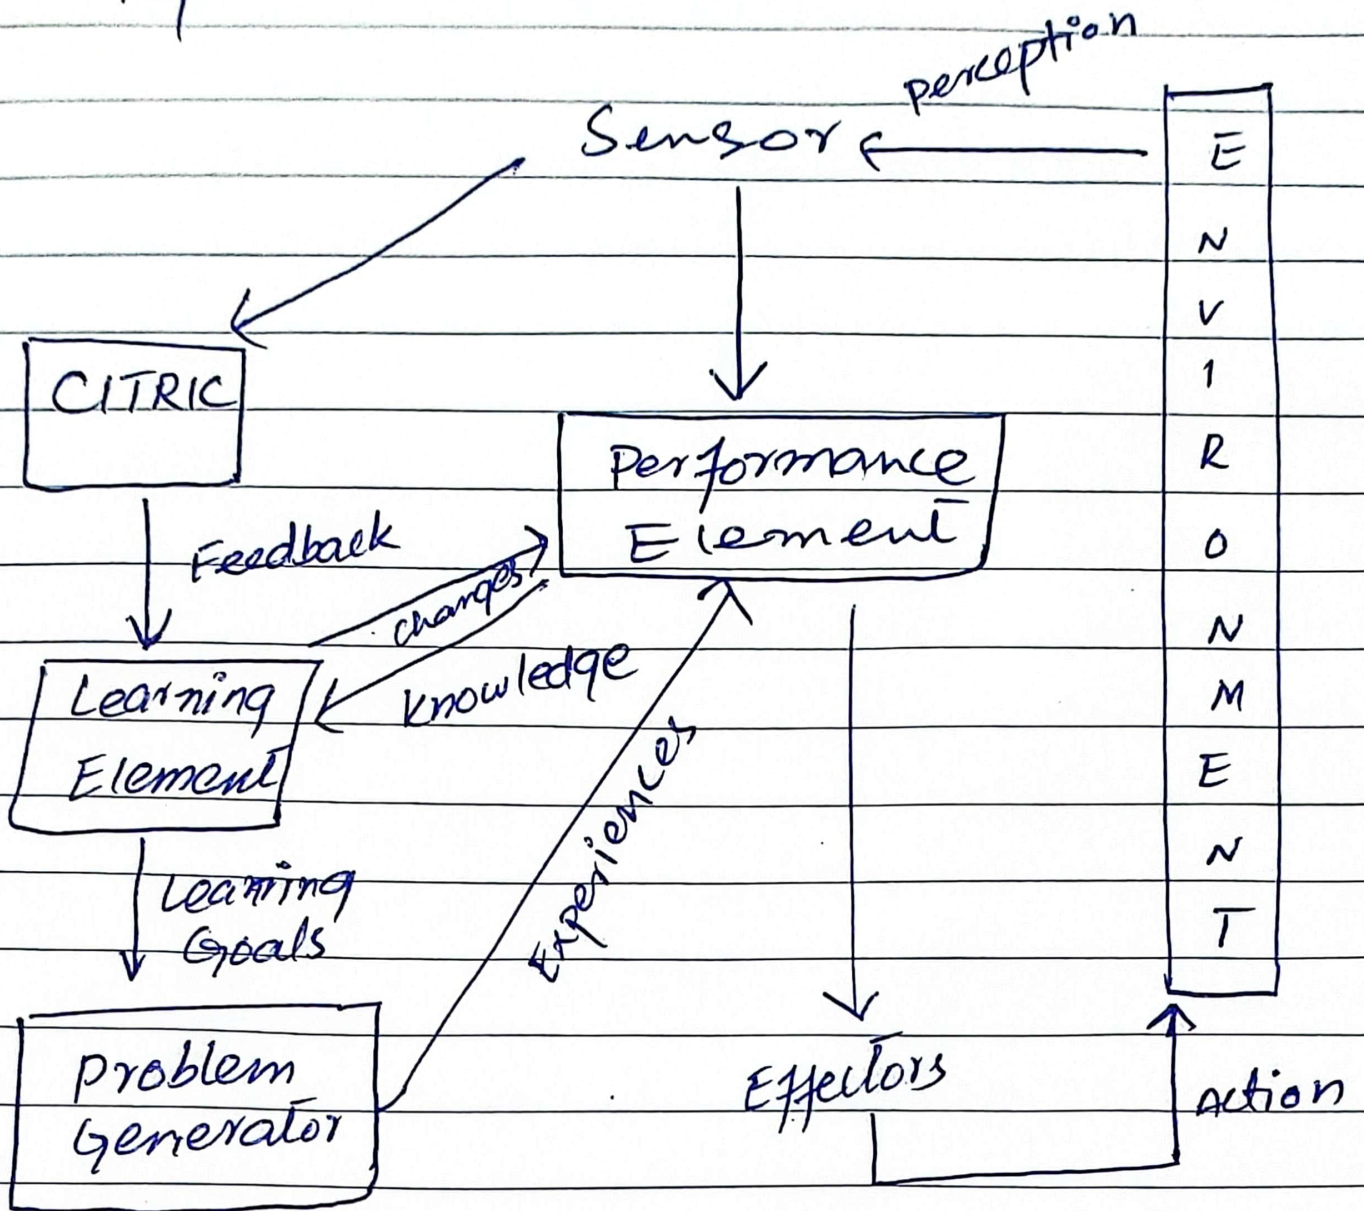 perception
Sensor
E
N
V
I
R
O
N
M
E
N
T
CITRIC
Performance
Element
Feedback
changes
Knowledge
Learning
Element
Experiences
Learning
Goals
Problem
Generator
Effectors
Action